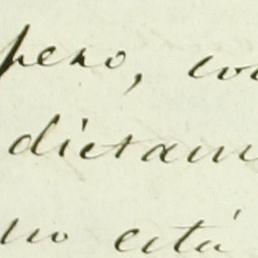 pero, co
dictam
no está